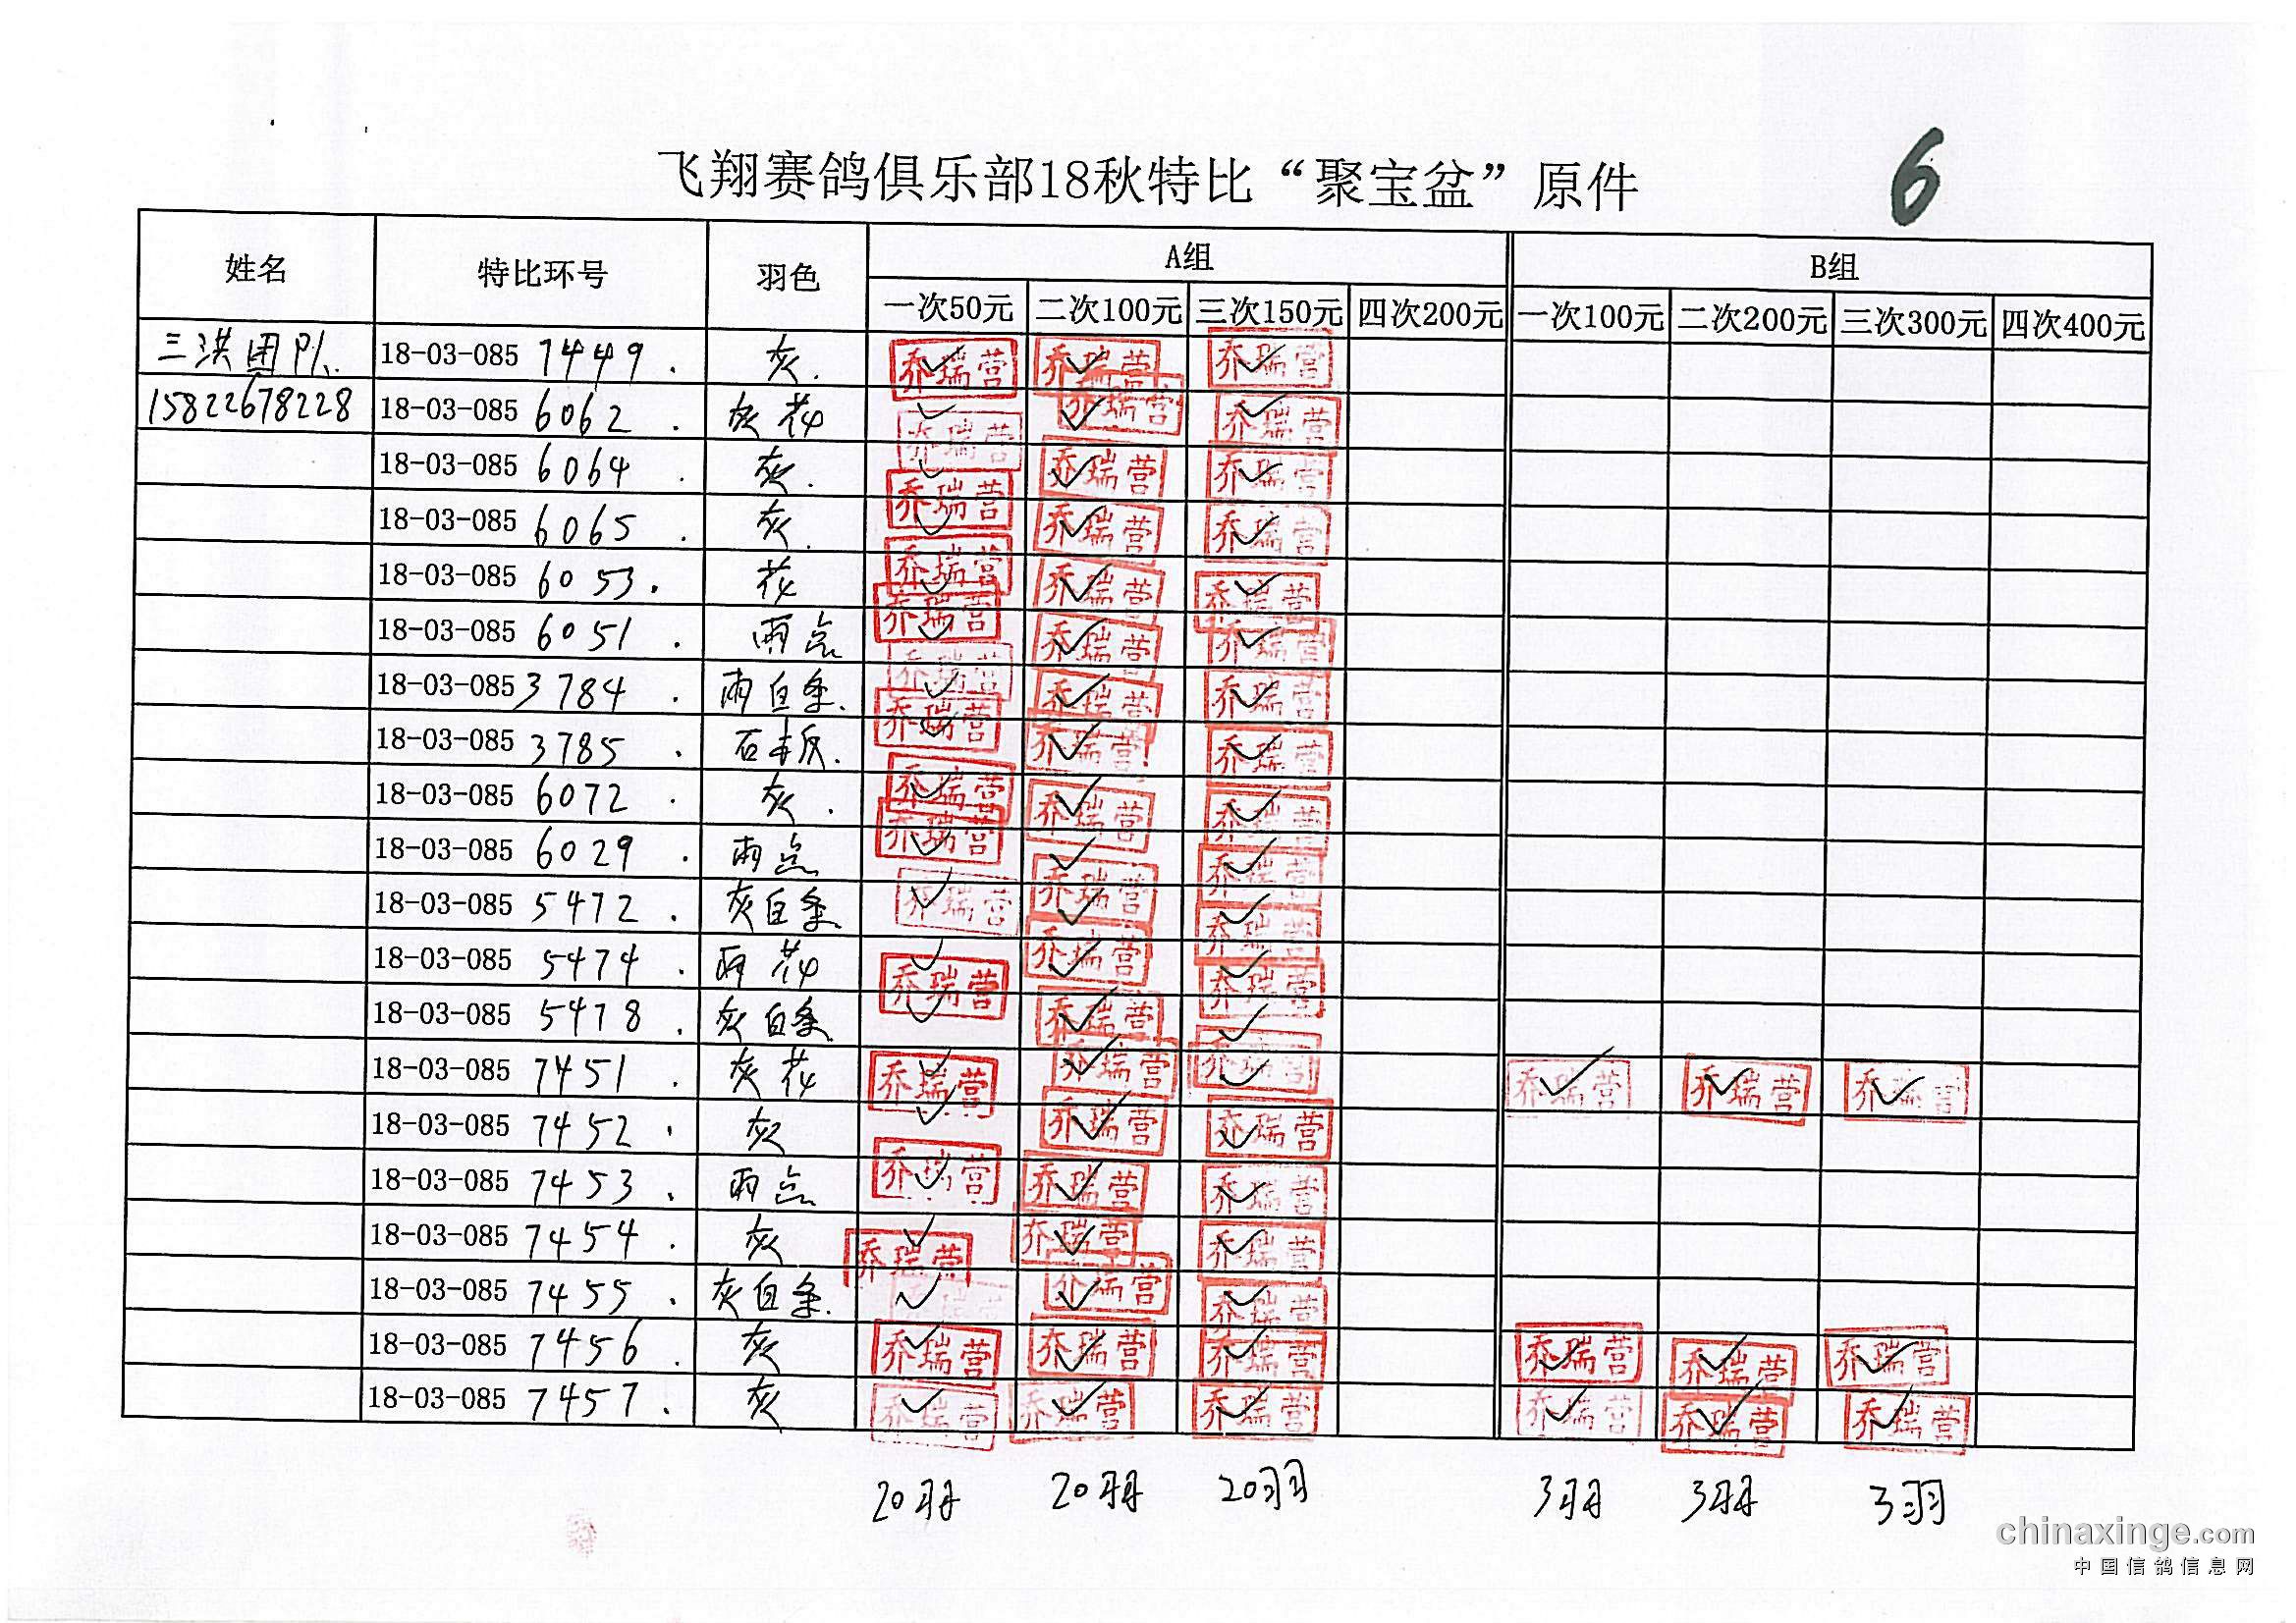 飞翔赛鸽俱乐部18秋特比“聚宝盆”原件
6
姓名 特比环号 羽色 A组 B组
一次50元 二次100元 三次150元 四次200元 一次100元 二次200元 三次300元 四次400元
三洪团队 18-03-085 7449 . 灰. 乔瑞营 ✓ 乔瑞营 ✓ 乔瑞营 ✓
15822678228 18-03-085 6062 . 灰花 乔瑞营 ✓ 乔瑞营 ✓ 乔瑞营 ✓
18-03-085 6064 . 灰. 乔瑞营 ✓ 乔瑞营 ✓ 乔瑞营 ✓
18-03-085 6065 . 灰. 乔瑞营 ✓ 乔瑞营 ✓ 乔瑞营 ✓
18-03-085 6053 . 花 乔瑞营 ✓ 乔瑞营 ✓ 乔瑞营 ✓
18-03-085 6051 . 雨点 乔瑞营 ✓ 乔瑞营 ✓ 乔瑞营 ✓
18-03-085 3784 . 雨白条. 乔瑞营 ✓ 乔瑞营 ✓ 乔瑞营 ✓
18-03-085 3785 . 石板. ✓ 乔瑞营 ✓ 乔瑞营 ✓
18-03-085 6072 . 灰. 乔瑞营 ✓ 乔瑞营 ✓ 乔瑞营 ✓
18-03-085 6029 . 雨点 乔瑞营 ✓ 乔瑞营 ✓ 乔瑞营 ✓
18-03-085 5472 . 灰白条. 乔瑞营 ✓ ✓ 乔瑞营 ✓
18-03-085 5474 . 雨花 乔瑞营 ✓ 乔瑞营 ✓ 乔瑞营 ✓
18-03-085 5478 . 灰白条 ✓ 乔瑞营 ✓ ✓
18-03-085 7451 . 灰花 乔瑞营 ✓ 乔瑞营 ✓ 乔瑞营 ✓ 乔瑞营 ✓ 乔瑞营 ✓ 乔瑞营 ✓
18-03-085 7452 . 灰 ✓ 乔瑞营 ✓ 乔瑞营 ✓
18-03-085 7453 . 雨点 乔瑞营 ✓ 乔瑞营 ✓ 乔瑞营 ✓
18-03-085 7454 . 灰 乔瑞营 ✓ 乔瑞营 ✓ 乔瑞营 ✓
18-03-085 7455 . 灰白条. ✓ 乔瑞营 ✓ 乔瑞营 ✓
18-03-085 7456 . 灰 乔瑞营 ✓ 乔瑞营 ✓ 乔瑞营 ✓ 乔瑞营 ✓ 乔瑞营 ✓ 乔瑞营 ✓
18-03-085 7457 . 灰 乔瑞营 ✓ 乔瑞营 ✓ 乔瑞营 ✓ 乔瑞营 ✓ 乔瑞营 ✓ 乔瑞营 ✓
20羽 20羽 20羽 3羽 3羽 3羽
chinaxinge.com
中国信鸽信息网